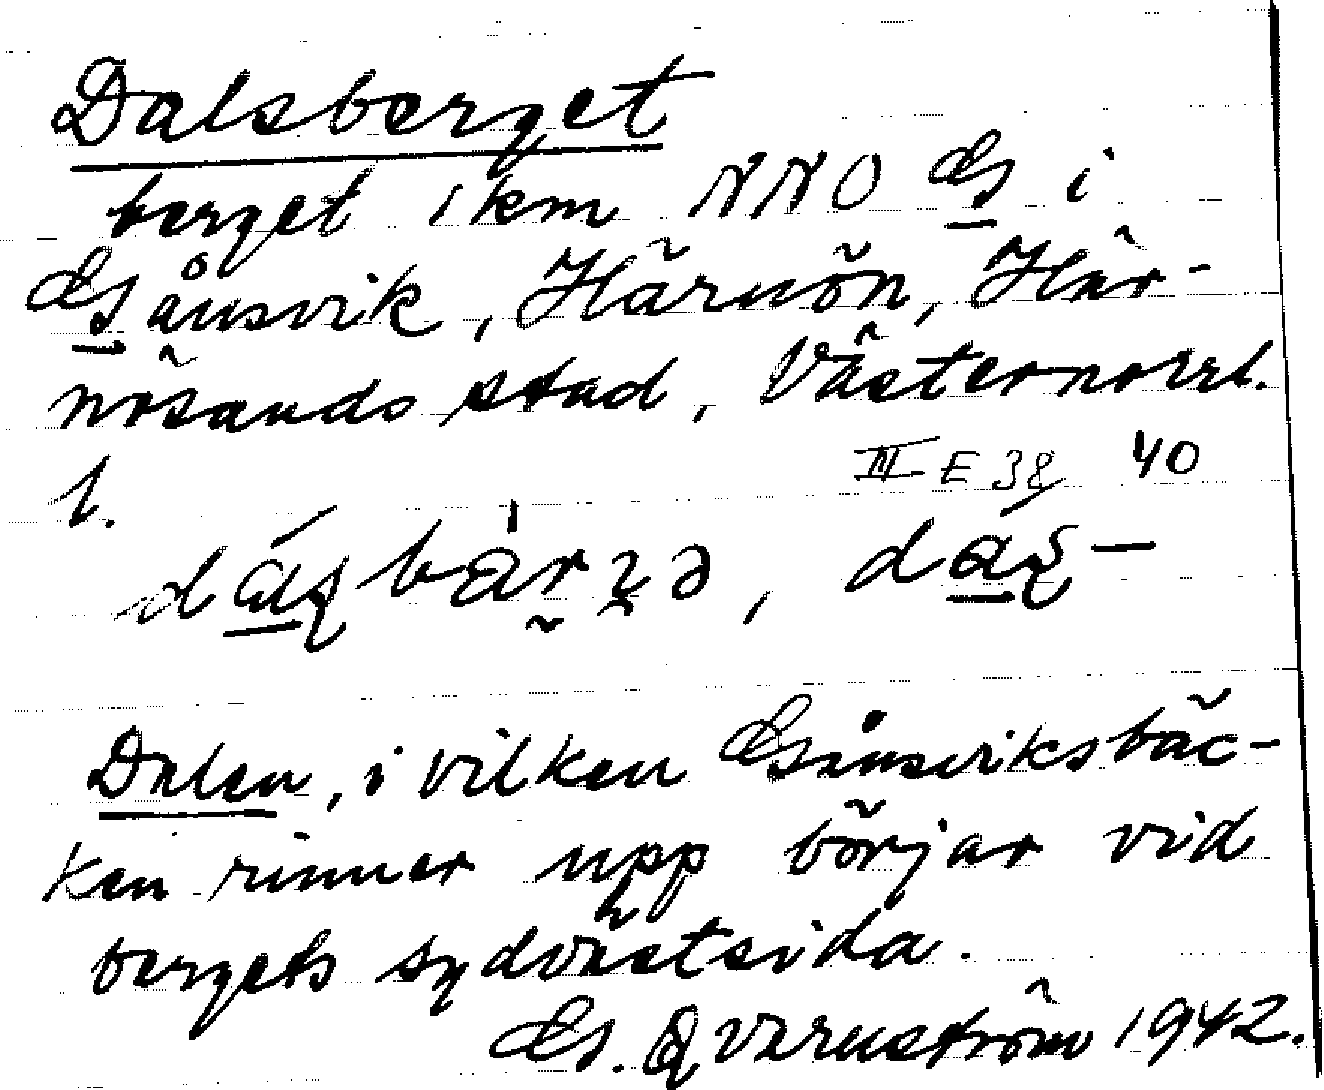 Dalsberget
berget 1 km NNO G i
Gånsvik, Härnön, Här-
nösands stad, Västernorrl.
l.
III E 38 40
Dalen, i vilken Gånsviksbäc-
ken rinner upp börjar vid
bergets sydvästsida.
G. Qvarnström 1942.